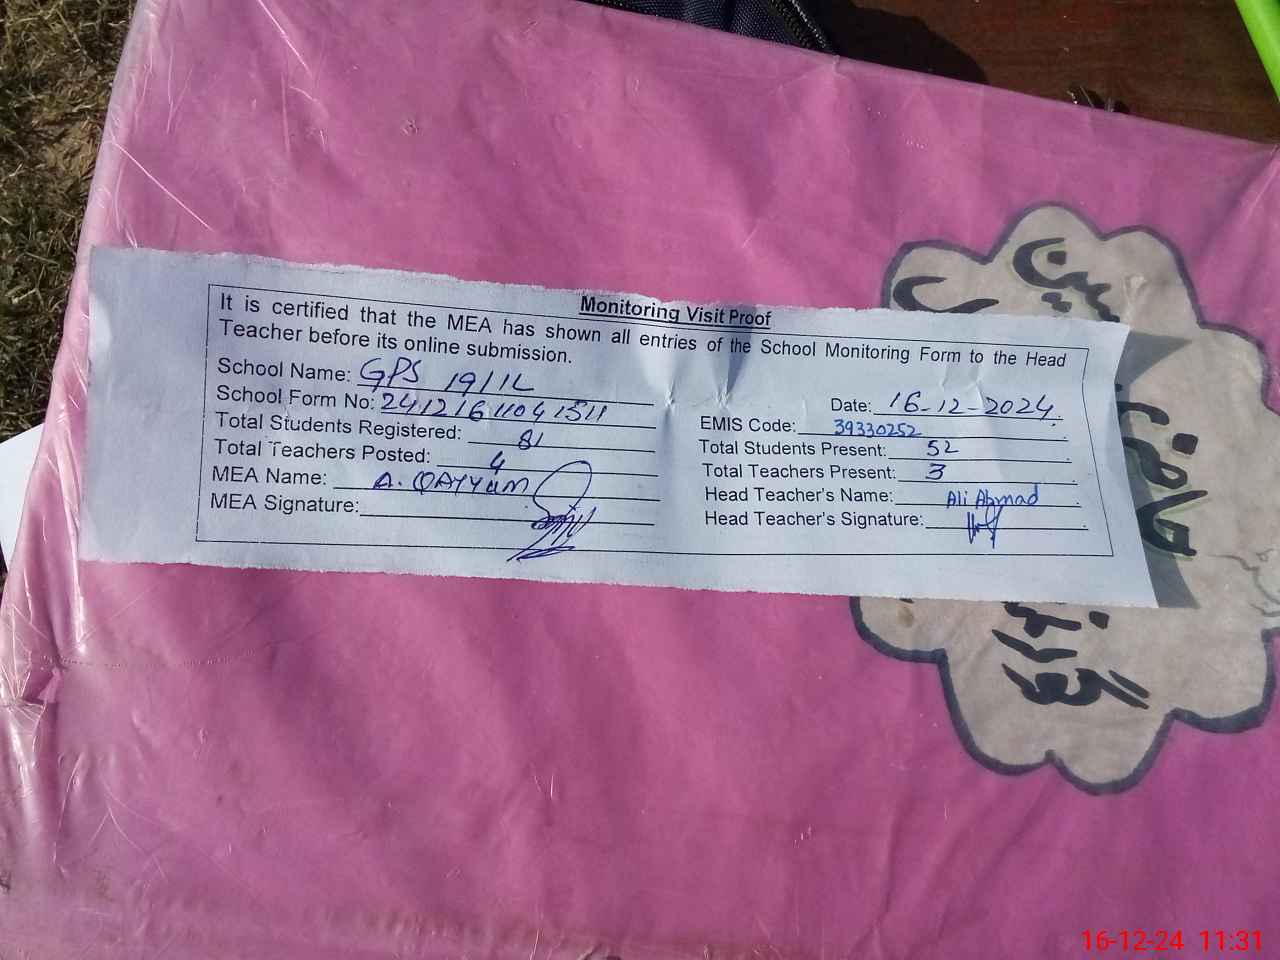 Monitoring Visit Proof
It is certified that the MEA has shown all entries of the School Monitoring Form to the Head
Teacher before its online submission.
School Name: GPS 19/1L
Date: 16-12-2024
School Form No: 24121611041511
EMIS Code: 39330252
Total Students Registered: 81
Total Students Present: 52
Total Teachers Posted: 4
Total Teachers Present: 3
MEA Name: A. QAYYUM
Head Teacher's Name: Ali Ahmad
MEA Signature:
Head Teacher's Signature:
16-12-24 11:31